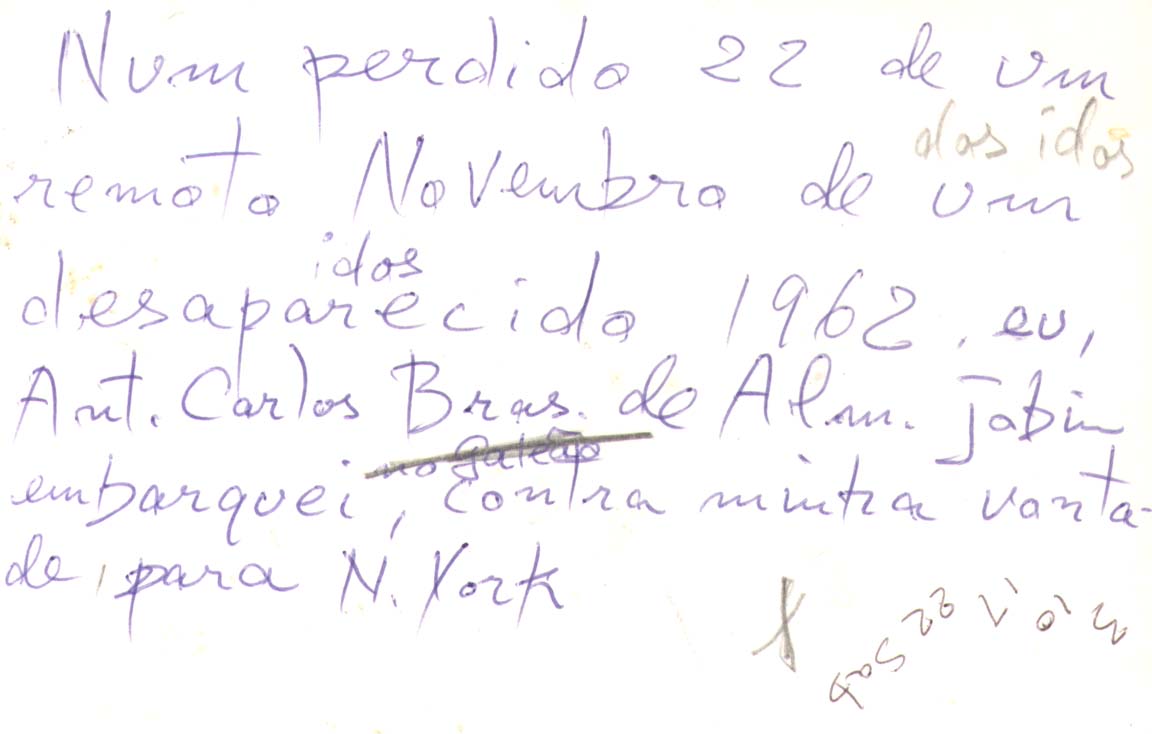 Num perdido 22 de um
dos idos
remoto Novembro de um
idos
desaparecido 1962, eu,
Ant. Carlos Bras. de Alm. Jobim
no galeão
embarquei, contra minha vonta-
de, para N. York